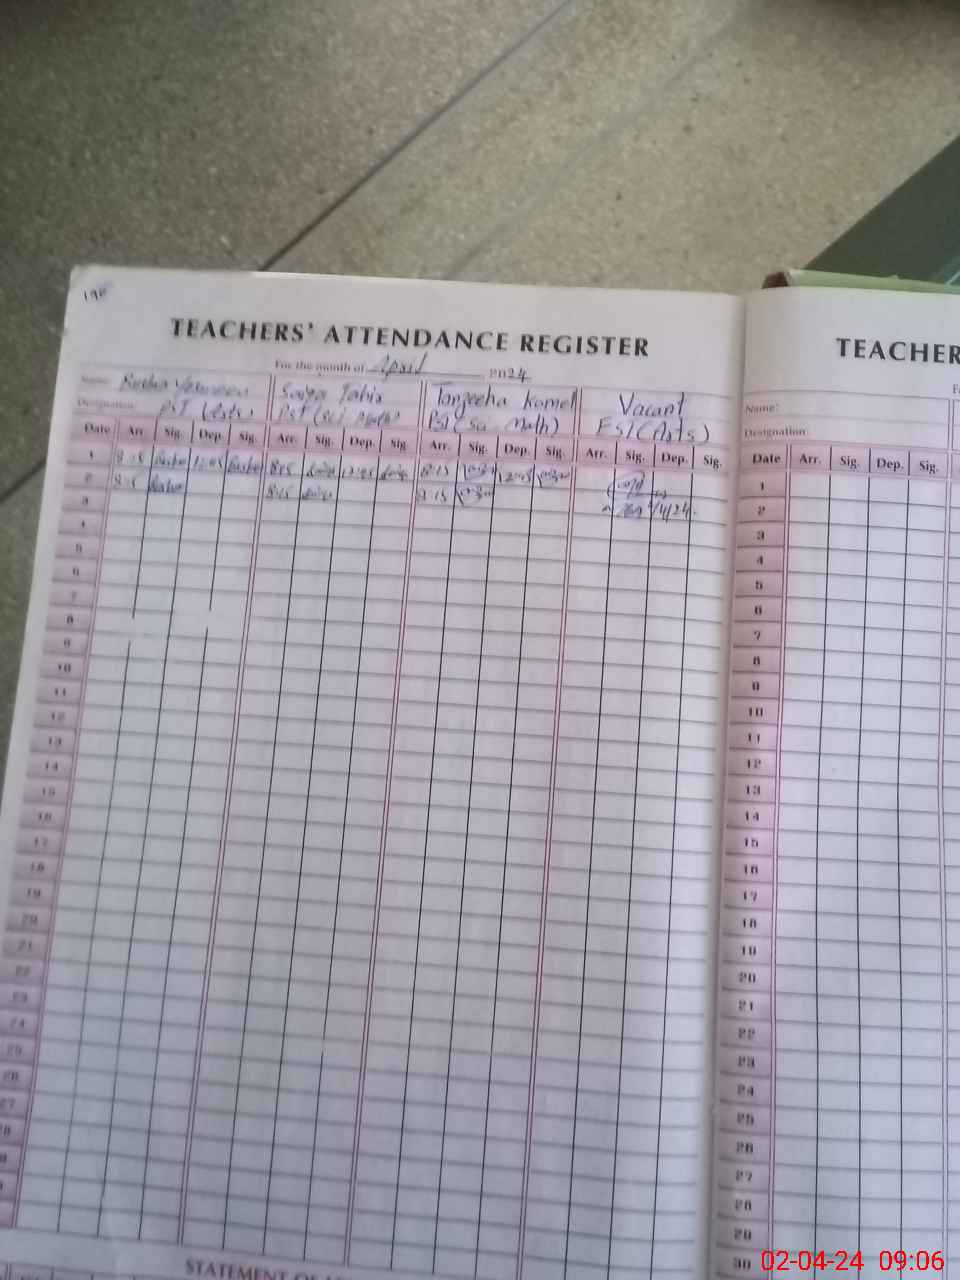 TEACHERS' ATTENDANCE REGISTER
For the month of April 2024
Name: Tanzeeha Komel Vacant
Designation: PST (Arts) PST (Sci Math) PST (Sci Math) EST (Arts)
Date Arr. Sig. Dep. Sig. Arr. Sig. Dep. Sig. Arr. Sig. Dep. Sig. Arr. Sig. Dep. Sig.
1 8:15 12:45 8:15 12:45 8:15 12:45
2 8:15 8:15 8:15 2/4/24
3
4
5
6
7
8
9
10
11
12
13
14
15
16
17
18
19
20
21
22
23
24
25
26
27
28
STATEMENT OF
TEACHER
Name:
Designation:
Date Arr. Sig. Dep. Sig.
1
2
3
4
5
6
7
8
9
10
11
12
13
14
15
16
17
18
19
20
21
22
23
24
25
26
27
28
29
30
02-04-24 09:06